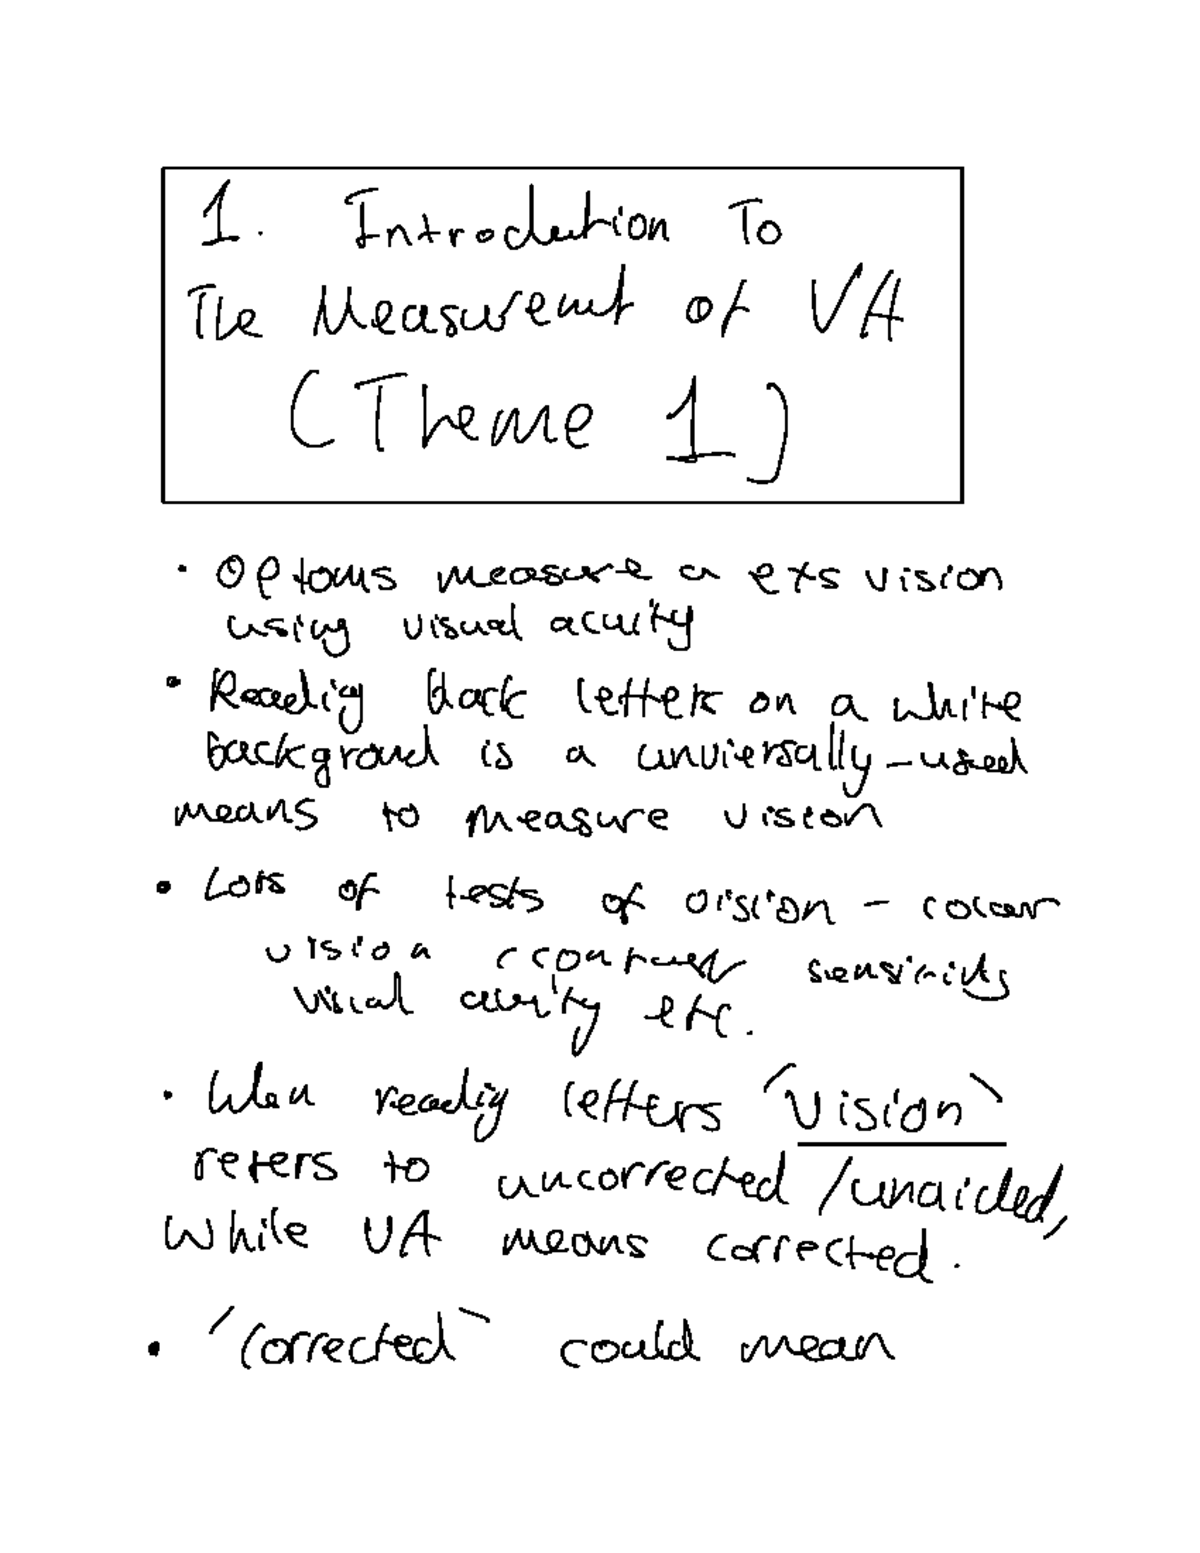 1. Introduction To
The Measurement of VA
(Theme 1)
• Optoms measure a pxs vision
using visual acuity
• Reading black letters on a white
background is a unviersally-used
means to measure vision
• Lots of tests of vision - colour
vision contrast sensitivity
visual acuity etc.
• When reading letters 'Vision'
refers to uncorrected/unaided,
While VA means corrected.
• 'Corrected' could mean